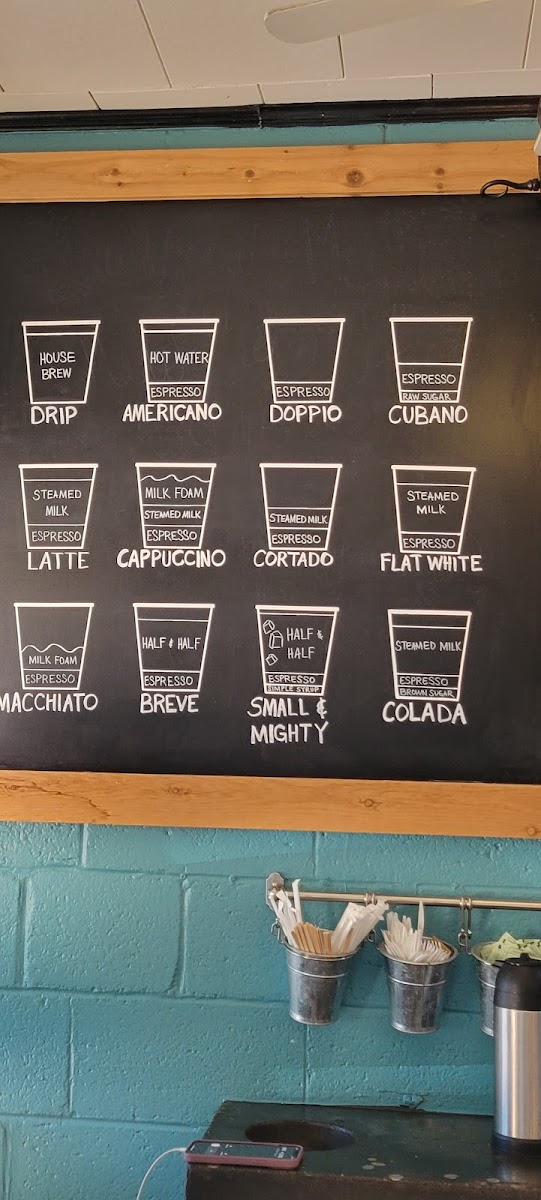 HOUSE
BREW
DRIP
HOT WATER
ESPRESSO
AMERICANO
ESPRESSO
DOPPIO
ESPRESSO
RAW SUGAR
CUBANO
STEAMED
MILK
ESPRESSO
LATTE
MILK FOAM
STEAMED MILK
ESPRESSO
CAPPUCCINO
STEAMED MILK
ESPRESSO
CORTADO
STEAMED
MILK
ESPRESSO
FLAT WHITE
MILK FOAM
ESPRESSO
MACCHIATO
HALF & HALF
ESPRESSO
BREVE
HALF &
HALF
ESPRESSO
SIMPLE SYRUP
SMALL &
MIGHTY
STEAMED MILK
ESPRESSO
BROWN SUGAR
COLADA